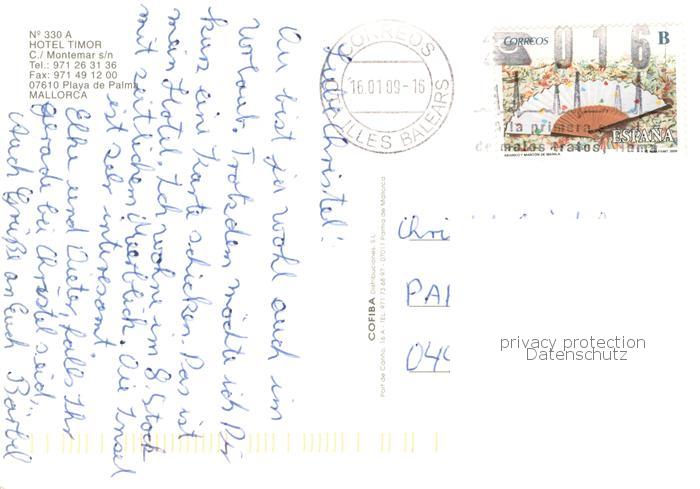 Nº 330 A
HOTEL TIMOR
C./ Montemar s/n
Tel.: 971 26 31 36
Fax: 971 49 12 00
07610 Playa de Palma
MALLORCA
Liebe Christel!
Du bist ja wohl auch im
Urlaub. Trotzdem möchte ich Dir
kurz eine Karte schicken. Das ist
mein Hotel. Ich wohne im 8. Stock
mit seitlichem Meerblick. Die Insel
ist sehr interesant
Elke und Dieter, falls Ihr
gerade bei Christel seid,
Auch Grüße an Euch Bärbel
CORREOS
16.01.09-16
ILLES BALEARS
CORREOS
B
016
a la primera
de malos tratos, llama
ESPAÑA
ABANICO Y MANTÓN DE MANILA
COFIBA Distribuciones, S.L.
Port de Canto, 16 A - Tel. 971 73 68 97 - 07011 Palma de Mallorca
Chri
PA
04
privacy protection
Datenschutz